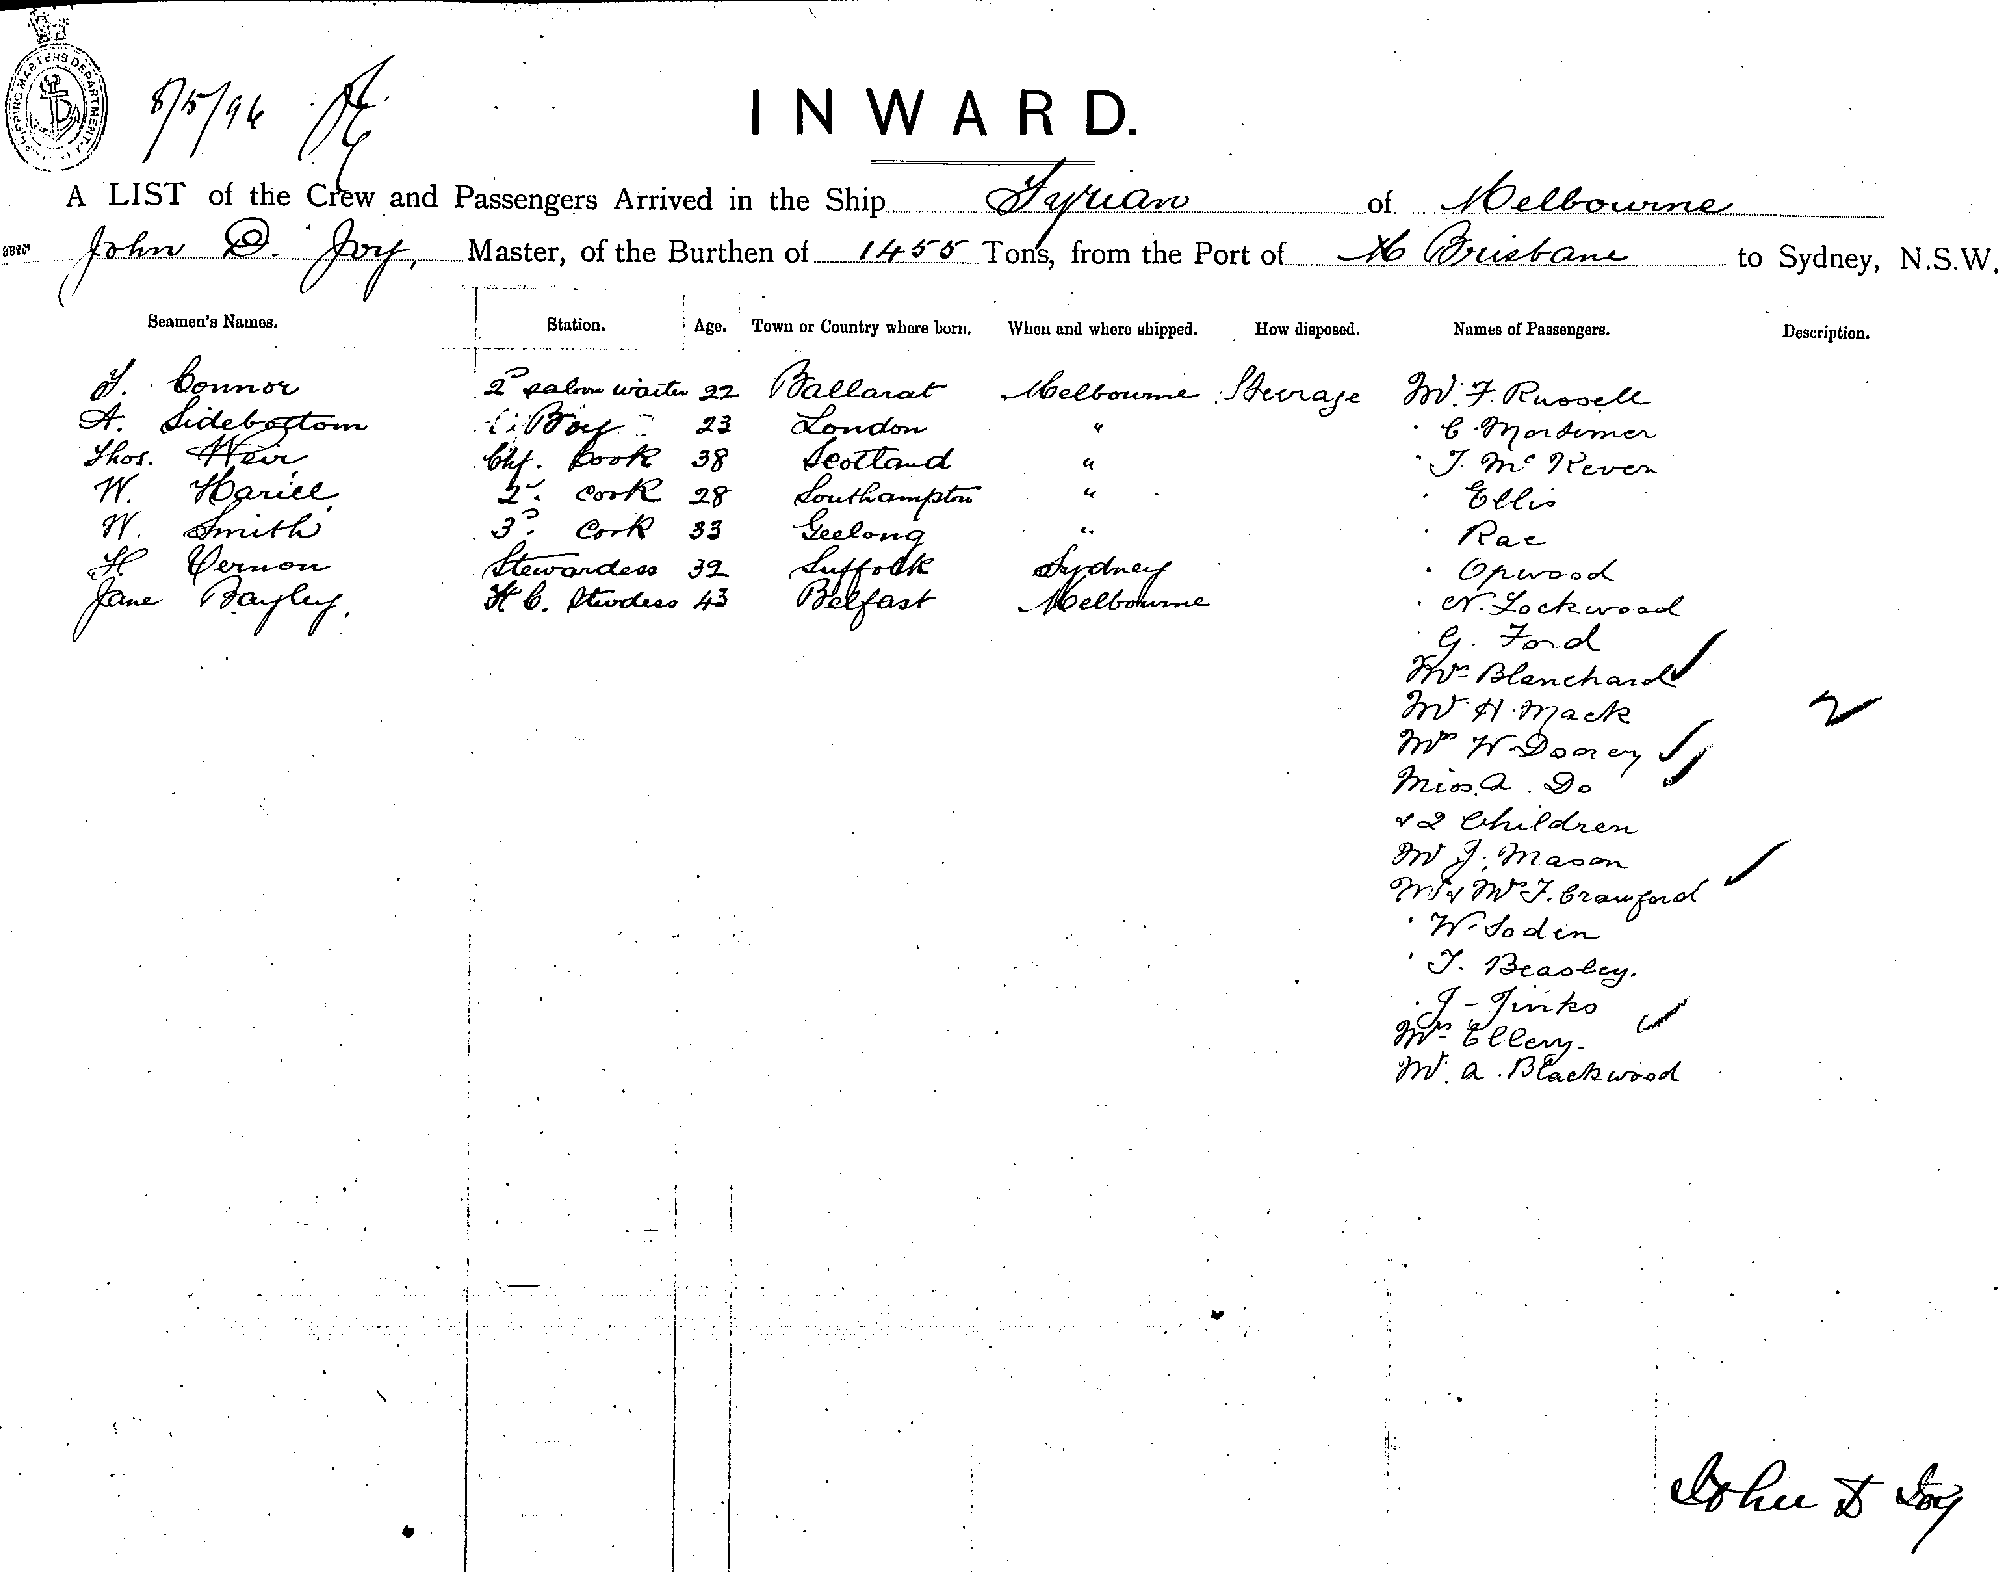 SHIPPING MASTERS DEPARTMENT
8/5/96
INWARD.
A LIST of the Crew and Passengers Arrived in the Ship Tyrian of Melbourne
John D. Joy, Master, of the Burthen of 1455 Tons, from the Port of Brisbane to Sydney, N.S.W.
Seamen's Names. Station. Age. Town or Country where born. When and where shipped. How disposed. Names of Passengers. Description.
T. Connor 2d saloon waiter 22 Ballarat Melbourne Steerage Mr. F. Russell
A. Sidebottom " Boy " 23 London " " C. Mortimer
Thos. Weir Chf. Cook 38 Scotland " " T. McKeven
W. Hariel 2d. Cook 28 Southampton " " Ellis
W. Smith 3d. Cook 33 Geelong " " Rae
H. Vernon Stewardess 32 Suffolk Sydney " Opwood
Jane Bayley. F.C. Stwdess 43 Belfast Melbourne " N. Lockwood
" G. Ford
Mrs Blanchard
Mr H. Mack
Mrs W Doorey
Miss. A. Do
& 2 Children
Mr J. Mason
Mr & Mrs T. Crawford
" W. Soden
" T. Beasley.
" J - Jinks
Mrs Ellery.
Mr. A. Blackwood
John D Joy